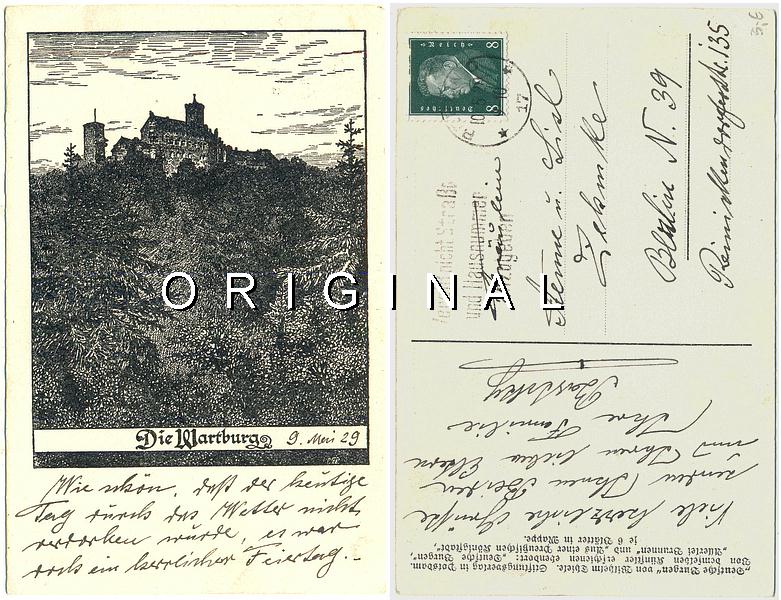 Die Wartburg 9. Mai 29
Wie schön, daß der heutige
Tag durch das Wetter nicht
verdorben wurde, es war
doch ein herrlicher Feiertag.-
ORIGINAL
Deutsches Reich
8 8
17
nicht Straße
und Hausnummer
angeben
Fräulein
Berlin N. 39
Reinickendorferstr. 135
Viele herzliche Grüße
senden Ihnen Beiden
und Ihren lieben Eltern
Ihre Familie
"Deutsche Burgen" von Wilhelm Thiele. Stiftungsverlag in Potsdam.
Von demselben Künstler erschienen ebendort: "Deutsche Burgen",
"Allerlei Brunnen" und "Aus einer Preußischen Königstadt",
je 6 Blätter in Mappe.